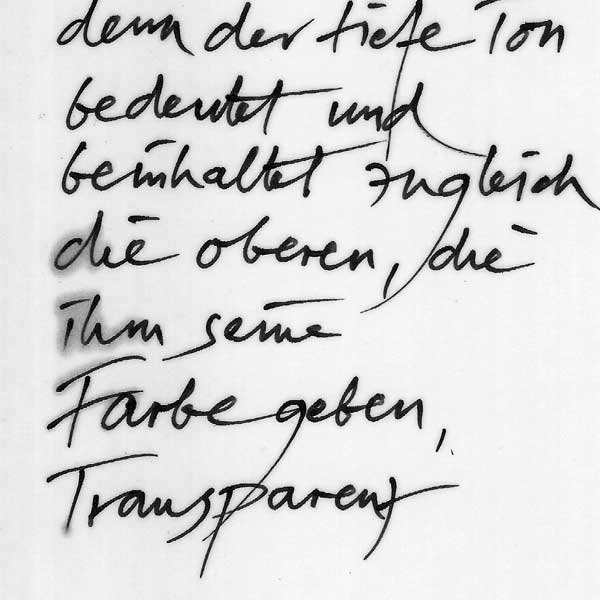 denn der tiefe Ton
bedeutet und
beinhaltet zugleich
die oberen, die
ihm seine
Farbe geben,
Transparenz